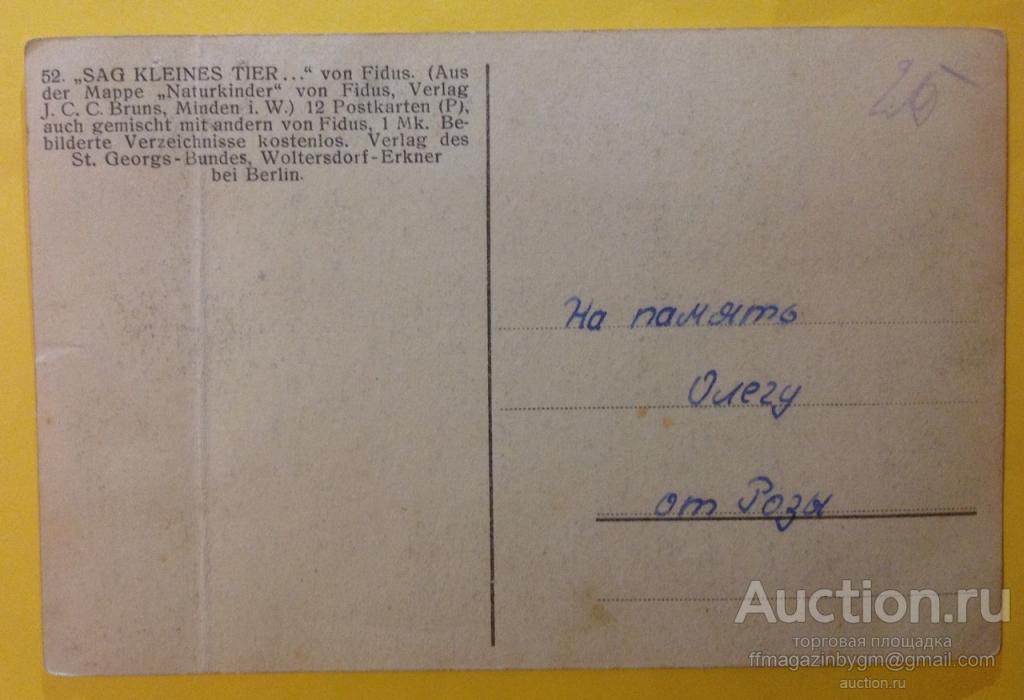 52. „SAG KLEINES TIER...“ von Fidus. (Aus
der Mappe „Naturkinder“ von Fidus, Verlag
J. C. C. Bruns, Minden i. W.) 12 Postkarten (P),
auch gemischt mit andern von Fidus, 1 Mk. Be-
bilderte Verzeichnisse kostenlos. Verlag des
St. Georgs-Bundes, Woltersdorf-Erkner
bei Berlin.
На память
Олегу
от Розы
Auction.ru
торговая площадка
ffmagazinbygm@gmail.com
auction.ru